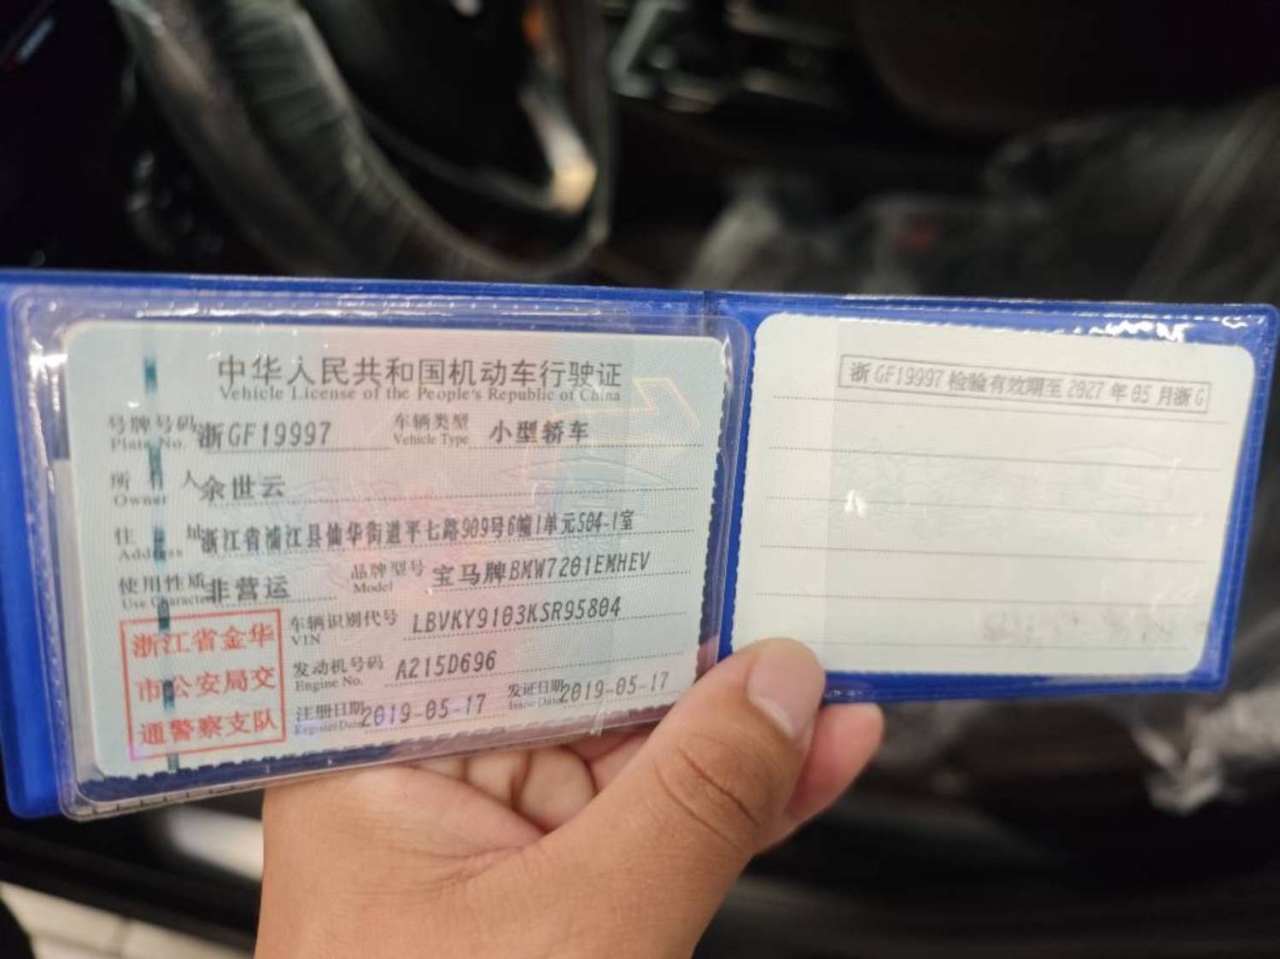 中华人民共和国机动车行驶证
Vehicle License of the People's Republic of China
号牌号码 浙GF19997 车辆类型 小型轿车
Plate No. Vehicle Type
所有人 余世云
Owner
住址 浙江省浦江县仙华街道平七路909号6幢1单元504-1室
Address
使用性质 非营运 品牌型号 宝马牌BMW7201EMHEV
Use Character Model
浙江省金华
市公安局交
通警察支队
车辆识别代号 LBVKY9103KSR95804
VIN
发动机号码 A215D696
Engine No.
注册日期 2019-05-17 发证日期 2019-05-17
Register Date Issue Date
浙GF19997 检验有效期至 2027 年 05 月浙G